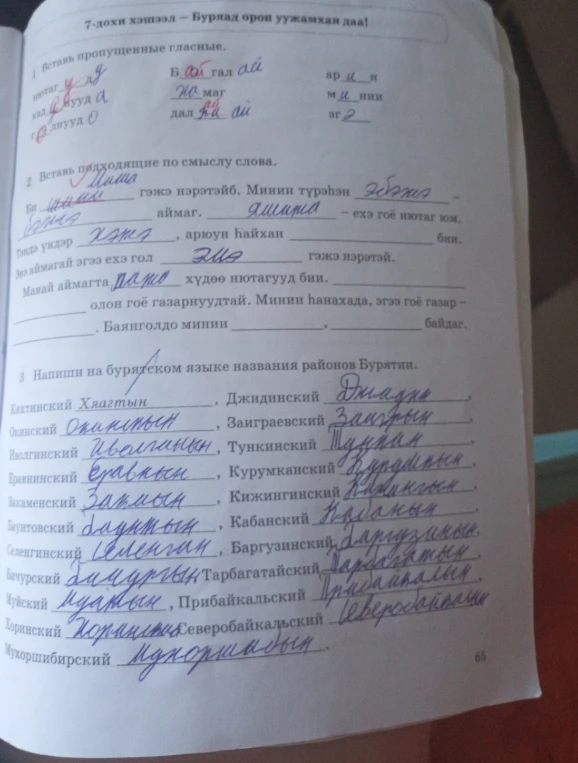 7-дохи хэшээл – Буряад орон уужамхан даа!
1 Вставь пропущенные гласные.
нютаг у д у Б ай гал ай ар и н
хад нууд а ха маг м и нии
г лнууд о дал ай эг э
2 Вставь подходящие по смыслу слова.
Миша
Би гэжэ нэрэтэйб. Минии түрэһэн –
аймаг. – ехэ гоё нютаг юм.
Тэндэ үндэр хэжэ, арюун һайхан бии.
Энэ аймагай эгээ ехэ гол гэжэ нэрэтэй.
Манай аймагта хүдөө нютагууд бии.
олон гоё газарнуудтай. Минии һанахада, эгээ гоё газар –
. Баянголдо минии , байдаг.
3 Напиши на бурятском языке названия районов Бурятии.
Кяхтинский Хяагтын , Джидинский Джидин ,
Окинский Окинскын , Заиграевский Заигрын ,
Иволгинский Иволгинын , Тункинский Тункан ,
Еравнинский Еравнын , Курумканский
Закаменский Закмын , Кижингинский Кижингын ,
Баунтовский Баунтын , Кабанский Кабанын ,
Селенгинский Селенган , Баргузинский Баргузинын,
Бичурский Бичургын Тарбагатайский Тарбагатын ,
Муйский , Прибайкальский Прибайкалын ,
Хоринский Северобайкальский Северобайкалын
Мухоршибирский Мухоршибын .
65